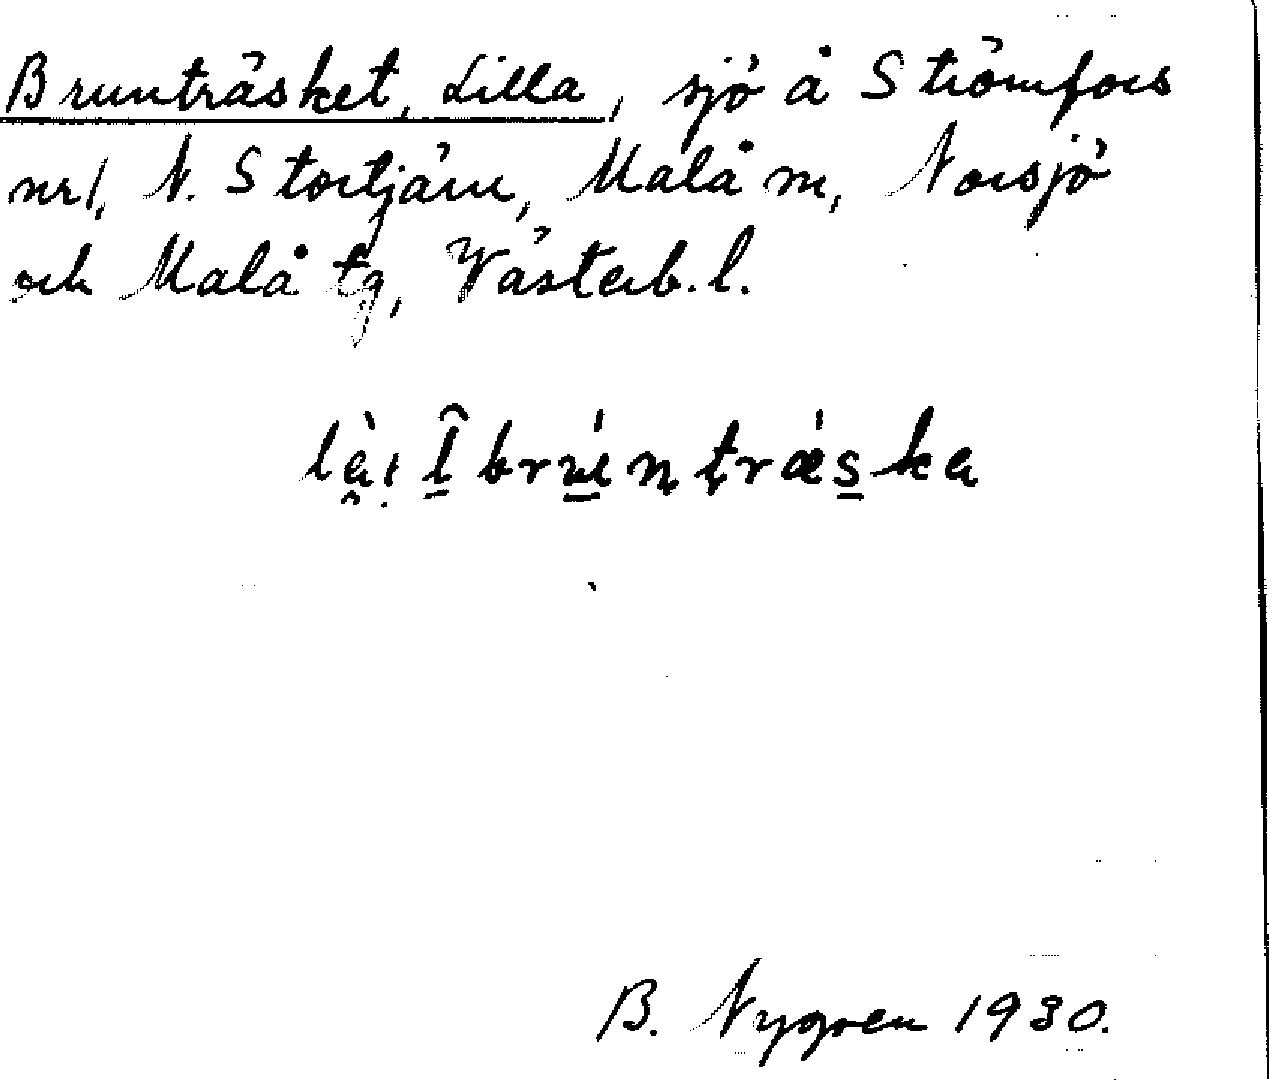 Brunträsket, Lilla, sjö å Strömfors
nr 1, N. Stortjärn, Malå sn, Norsjö
och Malå tg, Västerb. l.
B. Nygren 1930.